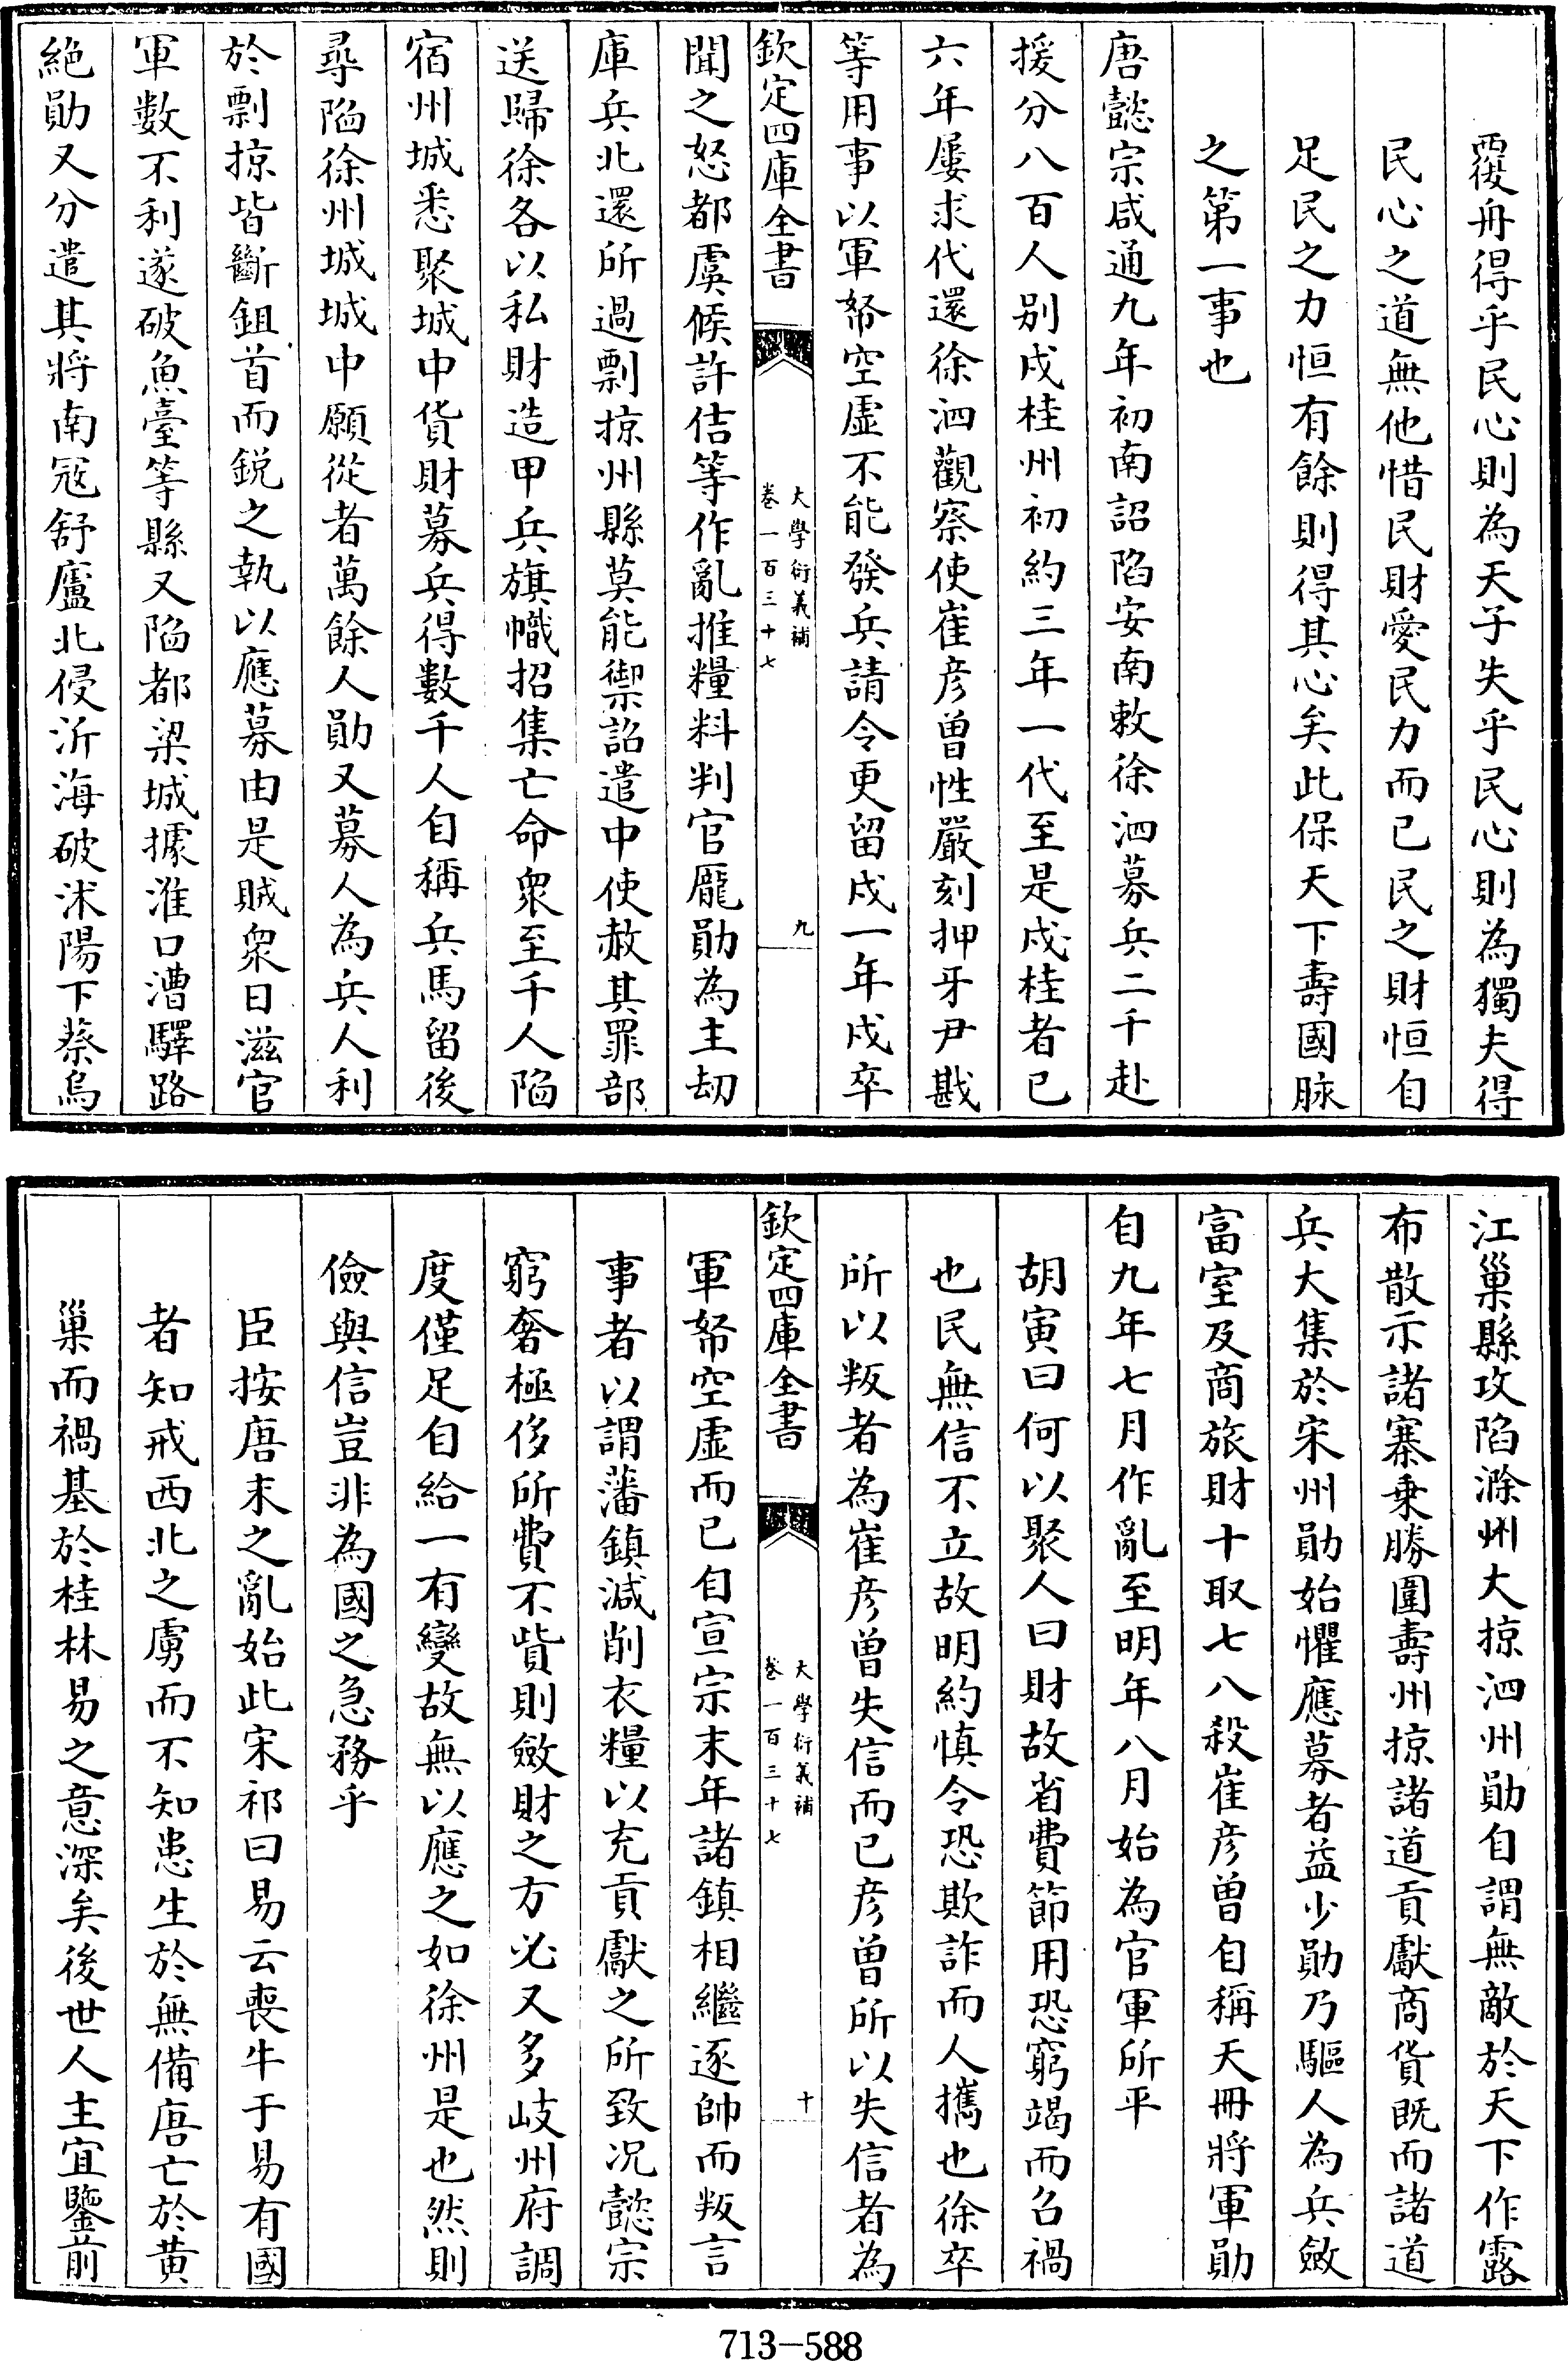 覆舟得乎民心則為天子失乎民心則為獨夫得
民心之道無他惜民財愛民力而已民之財恒自
足民之力恒有餘則得其心矣此保天下壽國脉
之第一事也
唐懿宗咸通九年初南詔陷安南敕徐泗募兵二千赴
援分八百人别戍桂州初約三年一代至是戍桂者已
六年屢求代還徐泗觀察使崔彦曽性嚴刻押牙尹戡
等用事以軍帑空虚不能發兵請令更留戍一年戍卒
欽定四庫全書
大學衍義補
卷一百三十七
九
聞之怒都虞候許佶等作亂推糧料判官龎勛為主刼
庫兵北還所過剽掠州縣莫能禦詔遣中使赦其罪部
送歸徐各以私財造甲兵旗幟招集亡命衆至千人陷
宿州城悉聚城中貨財募兵得數千人自稱兵馬留後
尋陷徐州城城中願從者萬餘人勛又募人為兵人利
於剽掠皆斷鉏首而鋭之執以應募由是賊衆日滋官
軍數不利遂破魚臺等縣又陷都梁城據淮口漕驛路
絶勛又分遣其將南冦舒廬北侵沂海破沭陽下蔡烏
江巢縣攻陷滁州大掠泗州勛自謂無敵於天下作露
布散示諸寨乗勝圍壽州掠諸道貢獻商貨既而諸道
兵大集於宋州勛始懼應募者益少勛乃驅人為兵斂
富室及商旅財十取七八殺崔彦曽自稱天冊將軍勛
自九年七月作亂至明年八月始為官軍所平
胡寅曰何以聚人曰財故省費節用恐窮竭而召禍
也民無信不立故明約慎令恐欺詐而人攜也徐卒
所以叛者為崔彦曽失信而已彦曽所以失信者為
欽定四庫全書
大學衍義補
卷一百三十七
十
軍帑空虚而已自宣宗末年諸鎮相繼逐帥而叛言
事者以謂藩鎮減削衣糧以充貢獻之所致况懿宗
窮奢極侈所費不貲則斂財之方必又多岐州府調
度僅足自給一有變故無以應之如徐州是也然則
儉與信豈非為國之急務乎
臣按唐末之亂始此宋祁曰易云喪牛于易有國
者知戒西北之虜而不知患生於無備唐亡於黄
巢而禍基於桂林易之意深矣後世人主宜鑒前
713-588